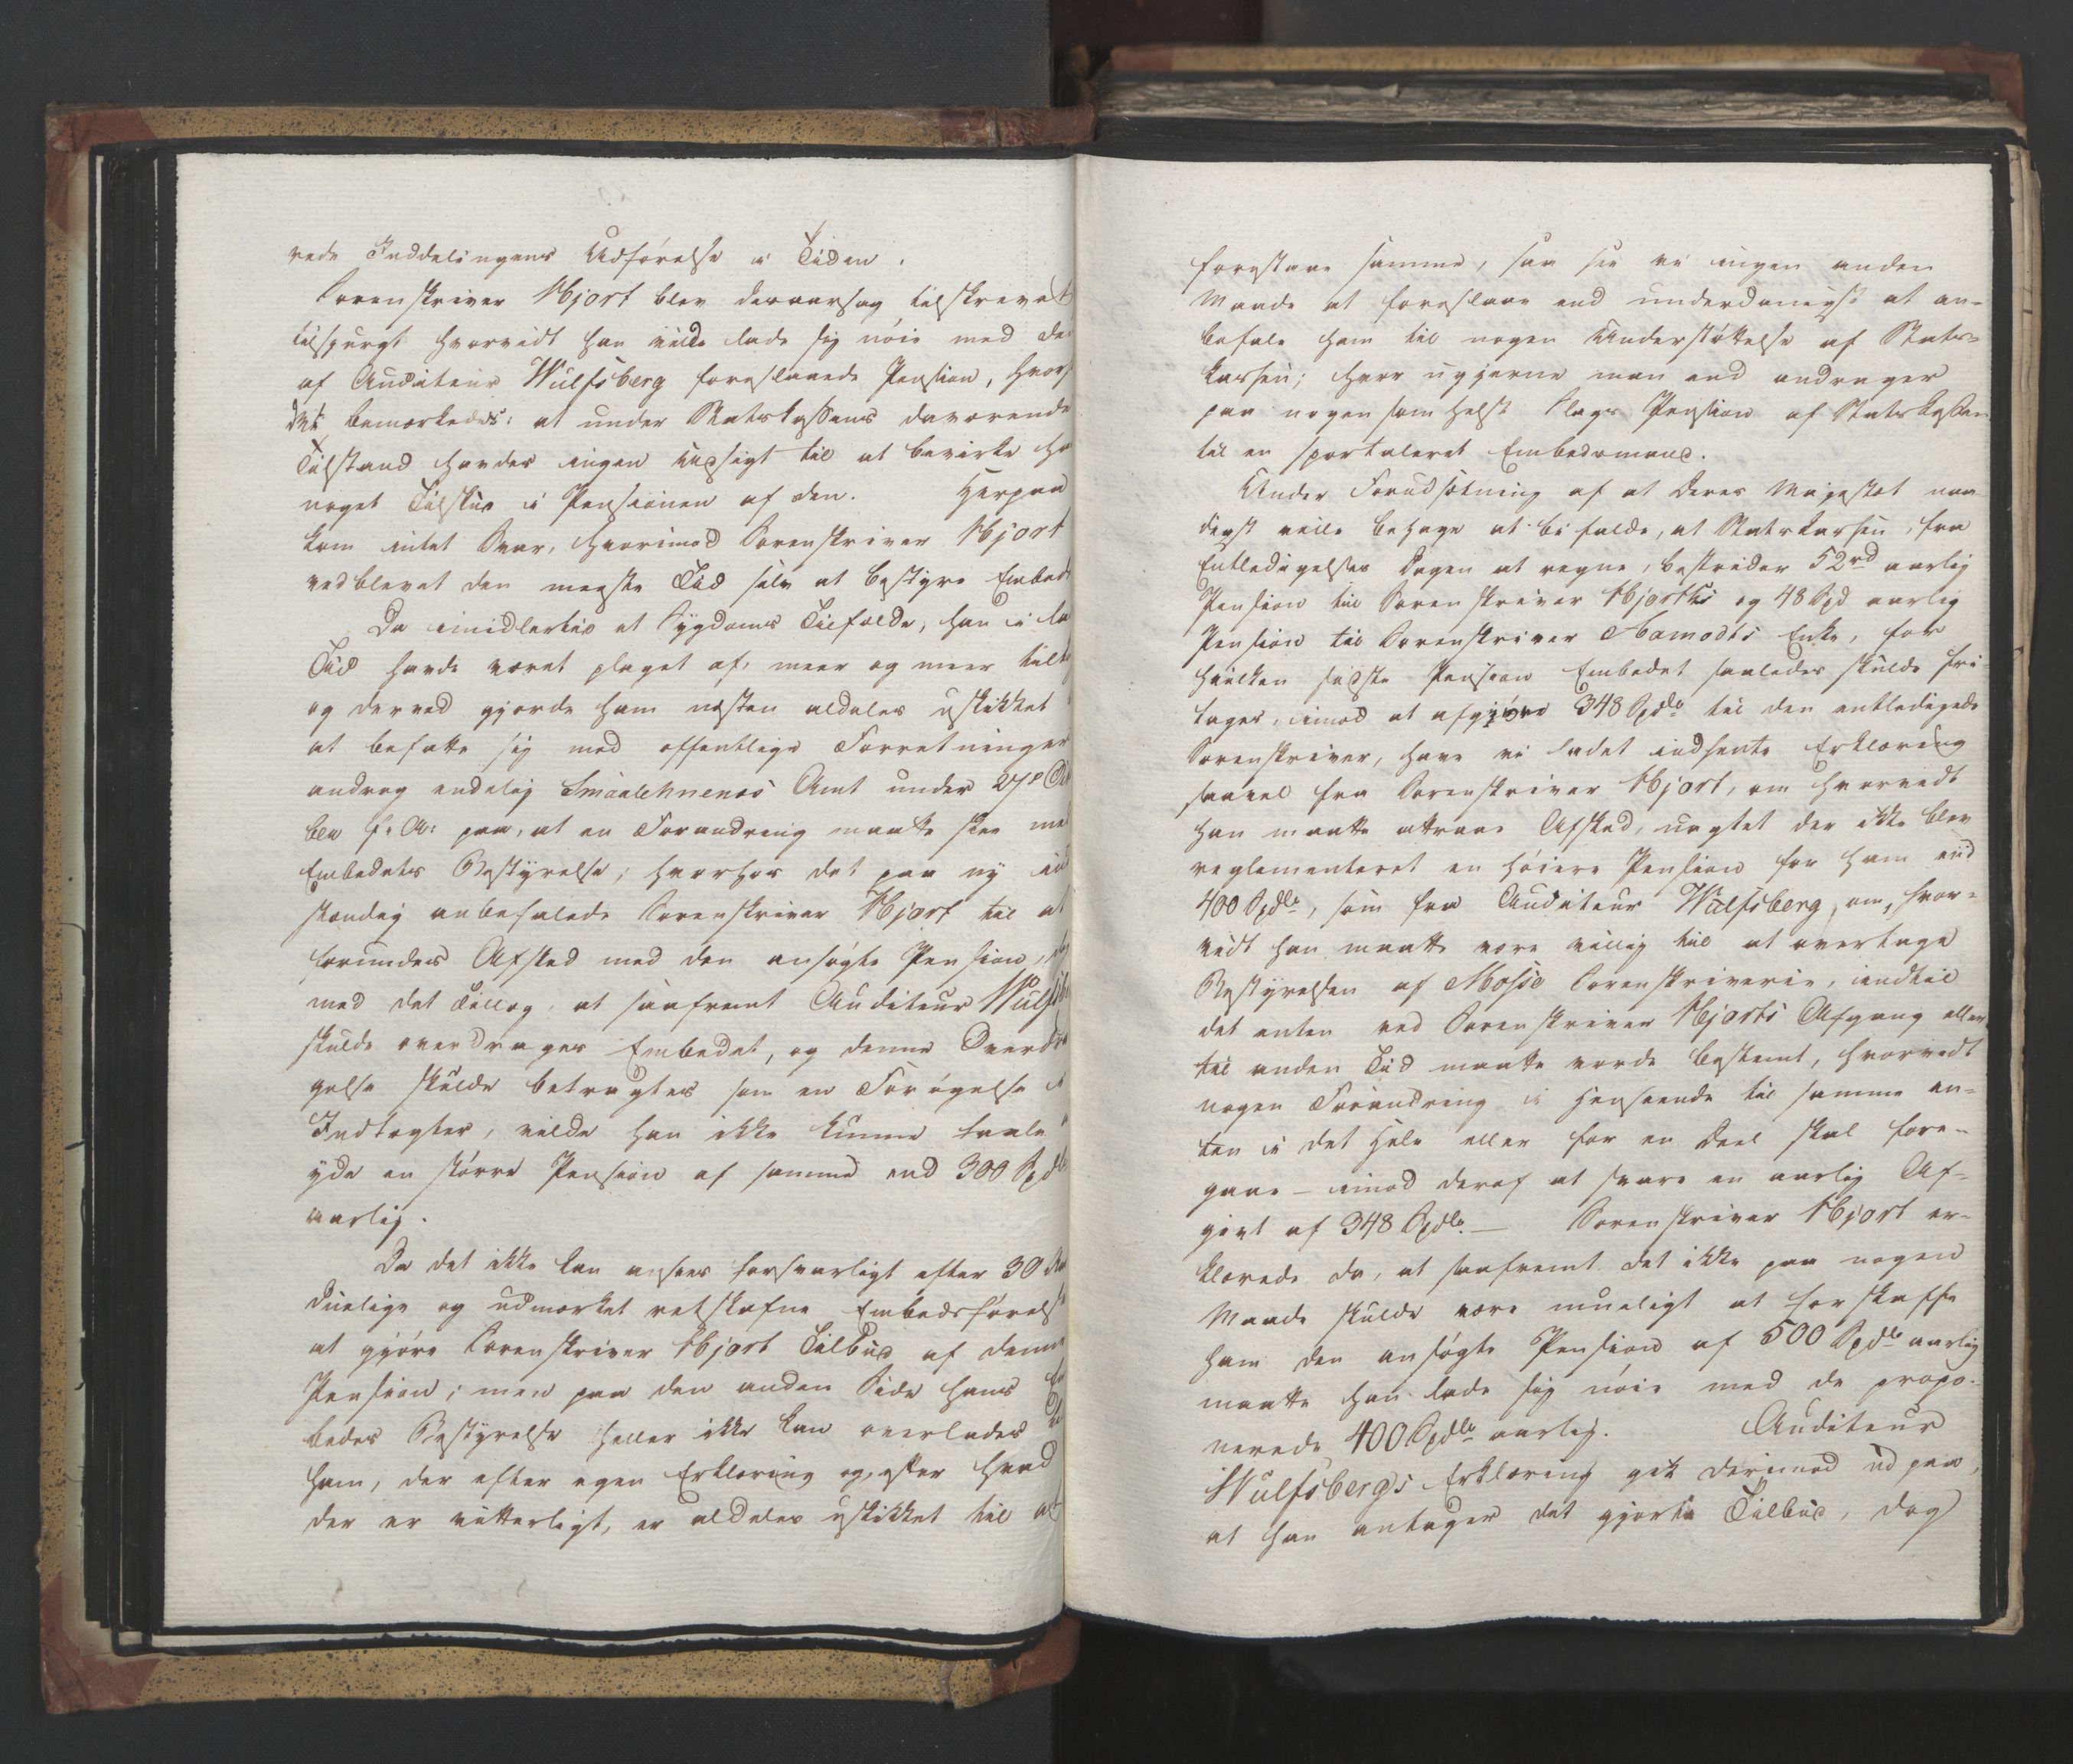 rede Inddelingens Udførelse i Tiden.
Sorenskriver Hjort blev deraarsag tilskrevet
tilspurgt hvorvidt han vilde lade sig nøie med de
af Auditeur Wulfsberg foreslaaede Pension, hvor
ved bemærkedes: at under Statskassens daværende
Tilstand havdes ingen Udsigt til at bevirke ha
noget Tilskud i Pensionen af den. Herpaa
kom intet Svar, hvorimod Sorenskriver Hjort
vedblevet den meeste Tid selv at bestyre Embed
Da imidlertid et Sygdoms Tilfælde, han i la
Tid havde været plaget af, meer og meer tilt
og derved gjorde ham næsten aldeles uskikket
at befatte sig med offentlige Forretninger
androg endelig Smaalehnenes Amt under 27de
ber f: A: paa, at en Forandring maatte skee me
Embedets Bestyrelse; hvorhos det paa ny ind
stændig anbefalede Sorenskriver Hjort til at
forundes Afsked med den ansøgte Pension,
med det Tillæg, at saafremt Auditeur Wulfsb
skulde overdrages Embedet, og denne Overdra
gelse skulde betragtes som en Forøgelse i
Indtægter, vilde han ikke kunne taale
yde en større Pension af samme end 300 Spd
aarlig.
Da det ikke kan ansees forsvarligt efter 30 Aa
duelige og udmærket retskafne Embedsførelse
at gjøre Sorenskriver Hjort Tilbud af denne
Pension; men paa den anden Side hans Em
bedes Bestyrelse heller ikke kan overlades
ham, der efter egen Erklæring og, efter hvad
der er vitterligt, er aldeles uskikket til at
forestaae samme, saa see vi ingen anden
Maade at foreslaae end underdanigst at an-
befale ham til nogen Understøttelse af Stats-
kassen; hvor ugjerne man end andrager
paa nogensomhelst Slags Pension af Statskassen
til en sportuleret Embedsmand.
Under Forudsætning af at Deres Majestæt naa-
digst ville behage at bifalde, at Statskassen, fra
Entledigelses Dagen at regne, bestrider 52rd aarlig
Pension til Sorenskriver Hjorths og 48 Spd aarlig
Pension til Sorenskriver Aamodts Enke, for
hvilken sidste Pension Embedet saaledes skulde fri-
tages, imod at afgjøre 348 Spdlr til den entledigede
Sorenskriver, have vi ladet indhente Erklæring
saavel fra Sorenskriver Hjort, om hvorvidt
han maatte attraae Afsked, uagtet der ikke blev
reglementeret en høiere Pension for ham end
400 Spdlr, som fra Auditeur Wulfsberg, om, hvor-
vidt han maatte være villig til at overtage
Bestyrelsen af Mosse Sorenskriverie, indtil
det enten ved Sorenskriver Hjorts Afgang eller
til anden Tid maatte vorde bestemt, hvorvidt
nogen Forandring i Henseende til samme en-
ten i det Hele eller for en Deel skal fore-
gaae – imod deraf at svare en aarlig Af-
givt af 348 Spdlr. — Sorenskriver Hjort er-
klærede da, at saafremt det ikke paa nogen
Maade skulde være mueligt at forskaffe
ham den ansøgte Pension af 500 Spdlr aarlig
maatte han lade sig nøie med de propo-
nerede 400 Spdlr aarlig. Auditeur
Wulfsbergs Erklæring gik derimod ud paa,
at han antager det gjorte Tilbud, dog